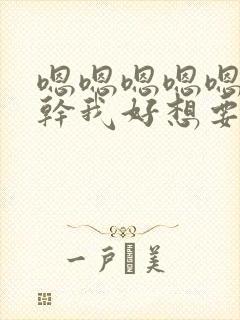 嗯嗯嗯嗯嗯
幹我好想要
一戶美